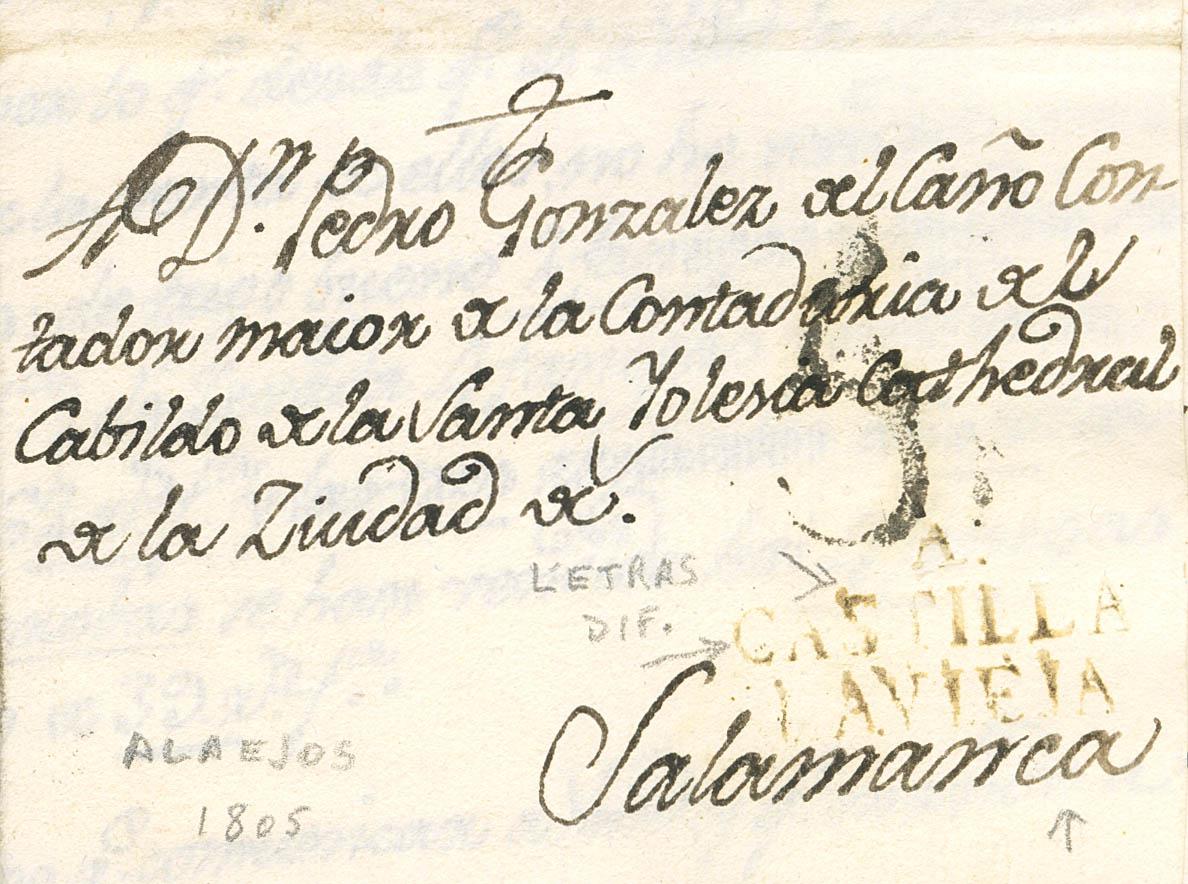 A Dn. Pedro Gonzalez del Caño Con-
tador maior de la Contaduria del
Cabildo de la Santa Yglesia Cathedral
de la Ziudad de.
5.
LETRAS
DIF.
A.
CASTILLA
LA.VIEJA
Salamanca
ALAEJOS
1805